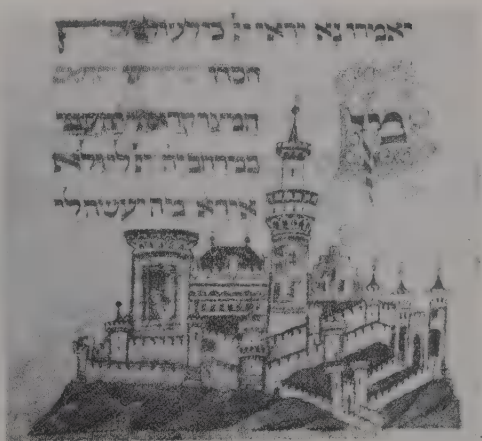 יאמרו נא יראי יי כי לעולם
חסדו
מן
המיצר קראתי
במרחב יה יי לי לא
אירא מה יעשה לי